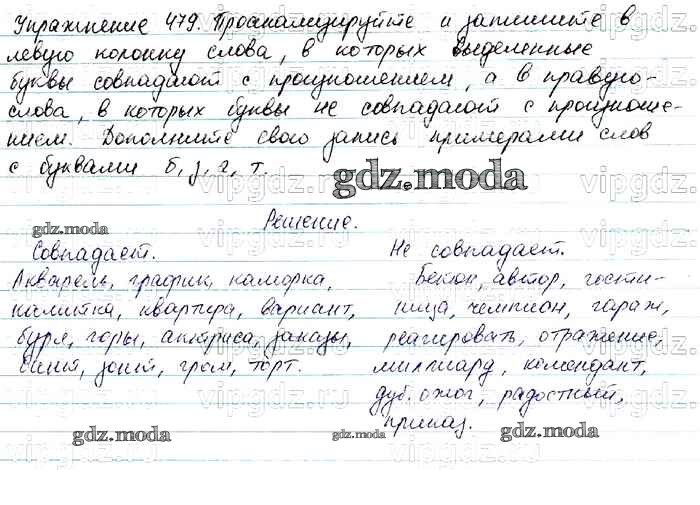 Упражнение 479. Проанализируйте и запишите в
левую колонку слова, в которых выделенные
буквы совпадают с произношением, а в правую-
слова, в которых буквы не совпадают с произноше-
нием. Дополните свою запись примерами слов
с буквами б, з, г, т.
gdz.moda
Решение.
gdz.moda
Совпадает.
Акварель, график, каморка,
калитка, квартира, вариант,
буря, горы, актриса, заказы,
синий, зонт, гром, торт.
Не совпадает.
Бекон, автор, гости-
ница, чемпион, гараж,
реагировать, отражение,
миллиард, комендант,
дуб, ожог, радостный,
приказ.
gdz.moda
gdz.moda
gdz.moda